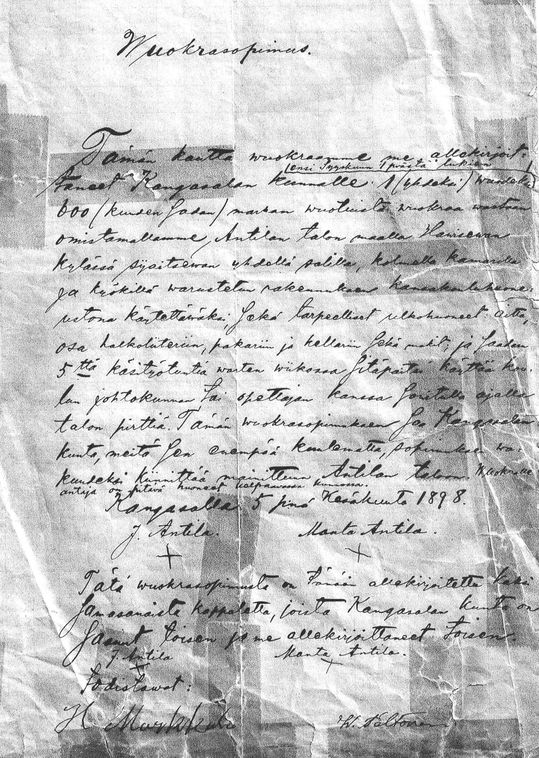 Wuokrasopimus.
Tämän kautta wuokraamme me allekirjoit-
ensi Syyskuun 1 päivästä lukien
taneet Kangasalan kunnalle 1 (yhdeksi) wuodeksi
600 (kuuden Sadan) markan wuotuista wuokraa wastaan
omistamallamme Antilan talon maalla Hawisewan
kylässä sijaitsewan yhdellä salilla, kolmella kamarilla
ja kyökillä warustetun rakennuksen kansakouluhuone-
ustona käytettäwäksi Sekä tarpeelliset ulkohuoneet: aitta,
osa halkoliteriin, pakariin ja kellariin Sekä makit, ja Saadaan
5 ttä käsityötuntia warten wiikossa Sitäpaitsi käyttää kou-
lun johtokunnan tai opettajan kanssa Sowitulla ajalla
talon pirttiä. Tämän wuokrasopimuksen Saa Kangasalan
kunta, meitä Sen enempää kuulematta, sopimuksen wa-
kuudeksi kiinnittää mainittuun Antilan taloon. Wuokralle
antaja on pitävä huoneet kunnossa.
Kangasalla 5 pnä Kesäkuuta 1898.
J. Antila. Manta Antila.
Tätä wuokrasopimusta on Tänään allekirjoitettu kaksi
Samasanaista kappaletta, joista Kangasalan kunta on
Saanut toisen ja me allekirjoittaneet toisen.
J. Antila Manta Antila.
Todistawat:
K. Peltonen